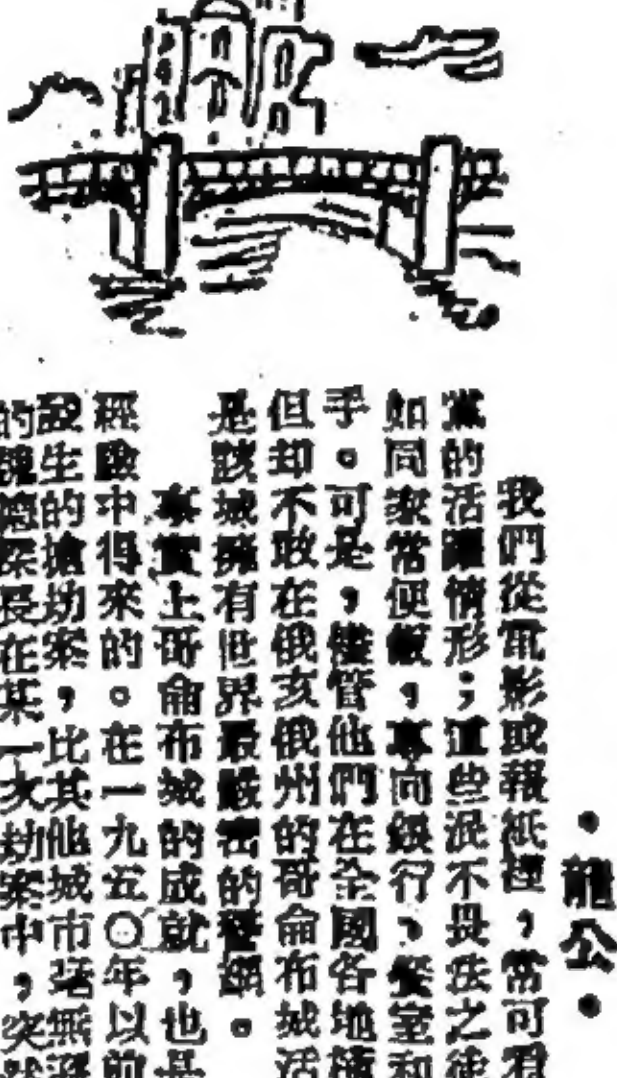 •龍公•
我們從電影或報紙裡，常可看
黨的活躍情形；這些泯不畏法之徒
如同家常便飯，專向銀行，餐室和
手。可是，儘管他們在全國各地橫
但却不敢在俄亥俄州的哥侖布城活
是該城擁有世界最嚴密的警網。
事實上哥侖布城的成就，也是
經驗中得來的。在一九五〇年以前
發生的搶劫案，比其他城市毫無遜
的魏德探長在某一次劫案中，突然